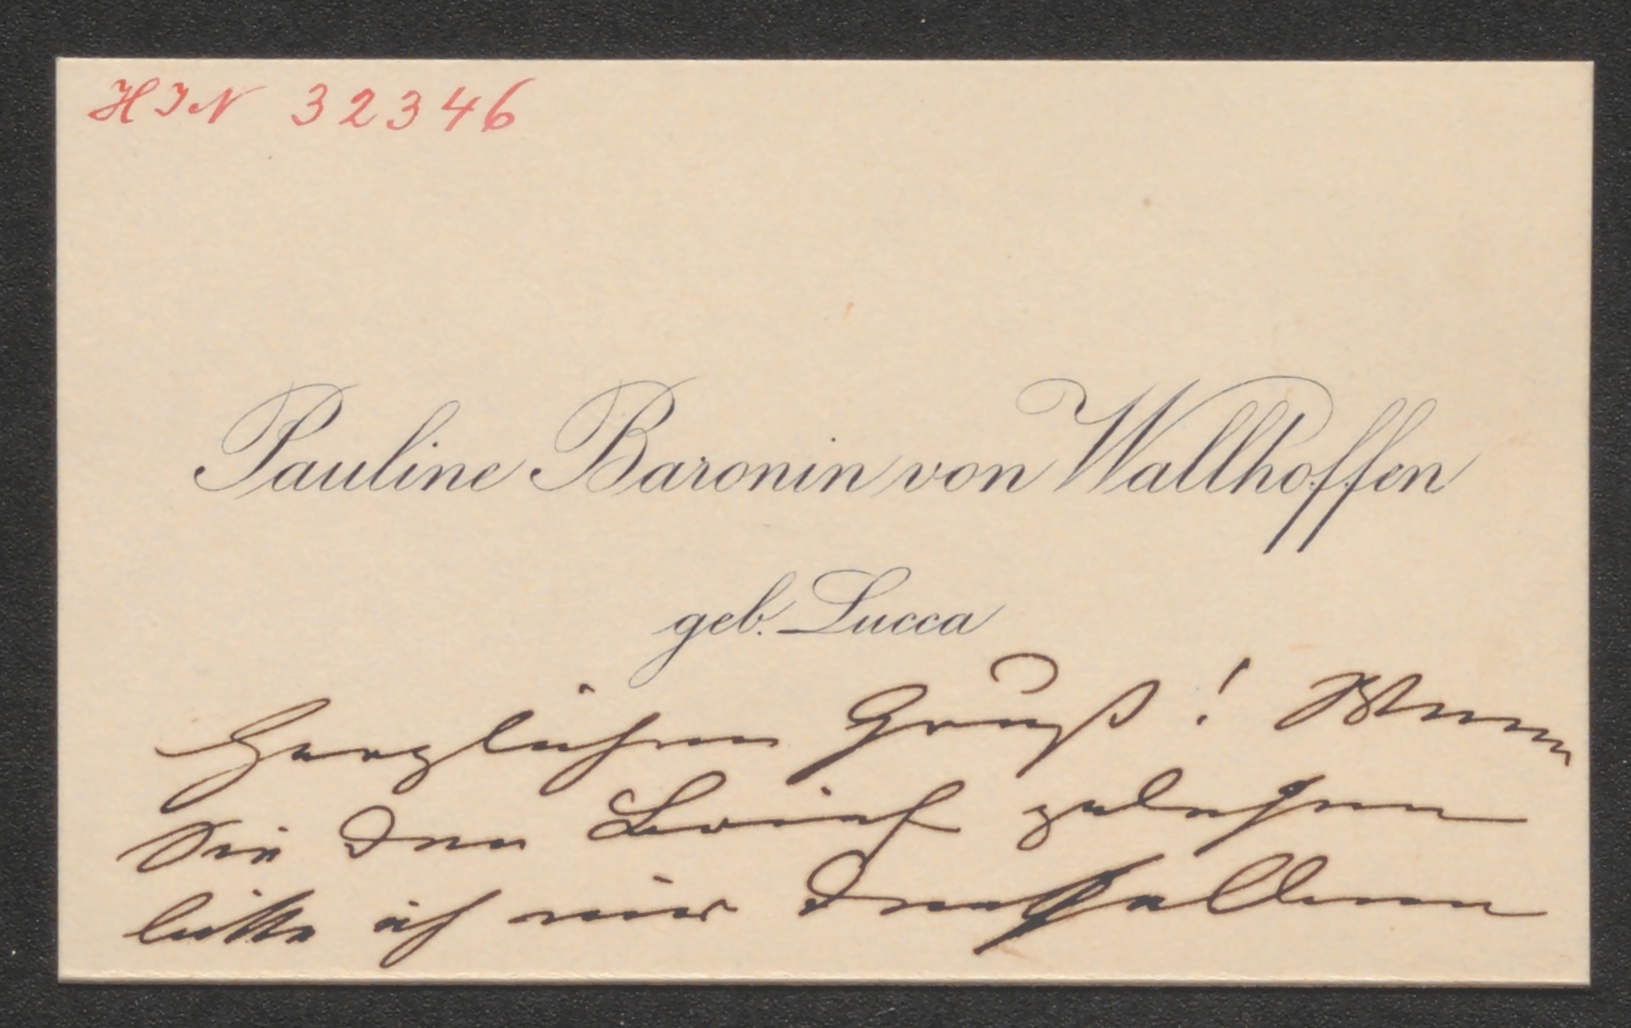 HIN 32346
Pauline Baronin von Wallhoffen
geb. Lucca
Herzlichen Gruß! Wenn
Sie den Brief gelesen
bitte ich mir denselben